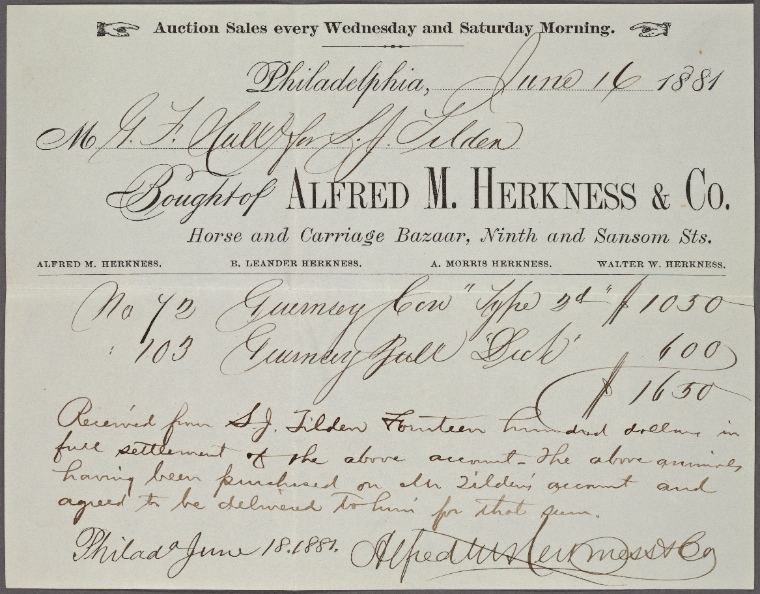 Auction Sales every Wednesday and Saturday Morning.
Philadelphia, June 16 1881
M G. F. Hull for S. J. Tilden
Bought of ALFRED M. HERKNESS & CO.
Horse and Carriage Bazaar, Ninth and Sansom Sts.
ALFRED M. HERKNESS. B. LEANDER HERKNESS. A. MORRIS HERKNESS. WALTER W. HERKNESS.
No 72 Guernsey Cow "Type 2d" $ 1050
" 103 Guernsey Bull "Dick" 600
$ 1650
Received from S. J. Tilden Fourteen hundred dollars in
full settlement of the above account - The above animals
having been purchased on Mr Tilden's account and
agreed to be delivered to him for that sum.
Philada June 18. 1881. Alfred M. Herkness & Co